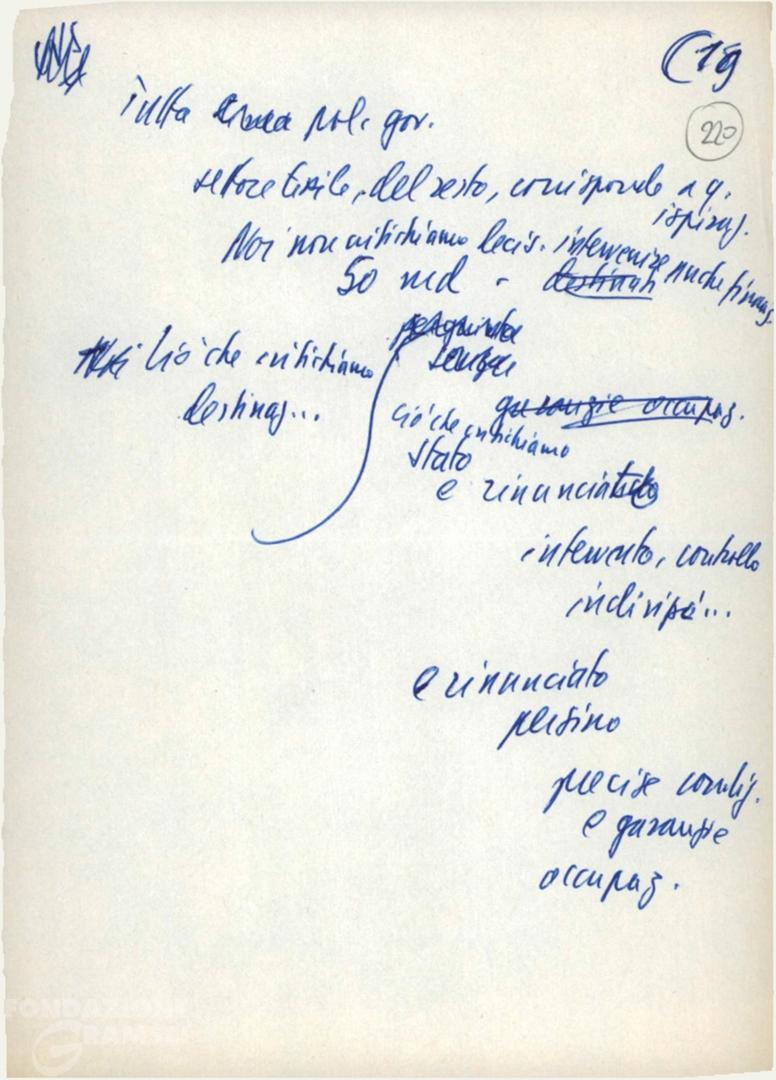 (19
220
Tutta linea pol. gov.
settore tessile, del resto, corrisponde a q.
ispiraz.
Noi non critichiamo decis. intervenire anche finanz.
50 md -
senza
Ciò che critichiamo
destinaz...
garanzie occupaz.
ciò che critichiamo
Stato
è rinunciato
intervento, controllo
indirizzi...
È rinunciato
persino
precise condiz.
e garanzie
occupaz.
FONDAZIONE
GRAMSCI